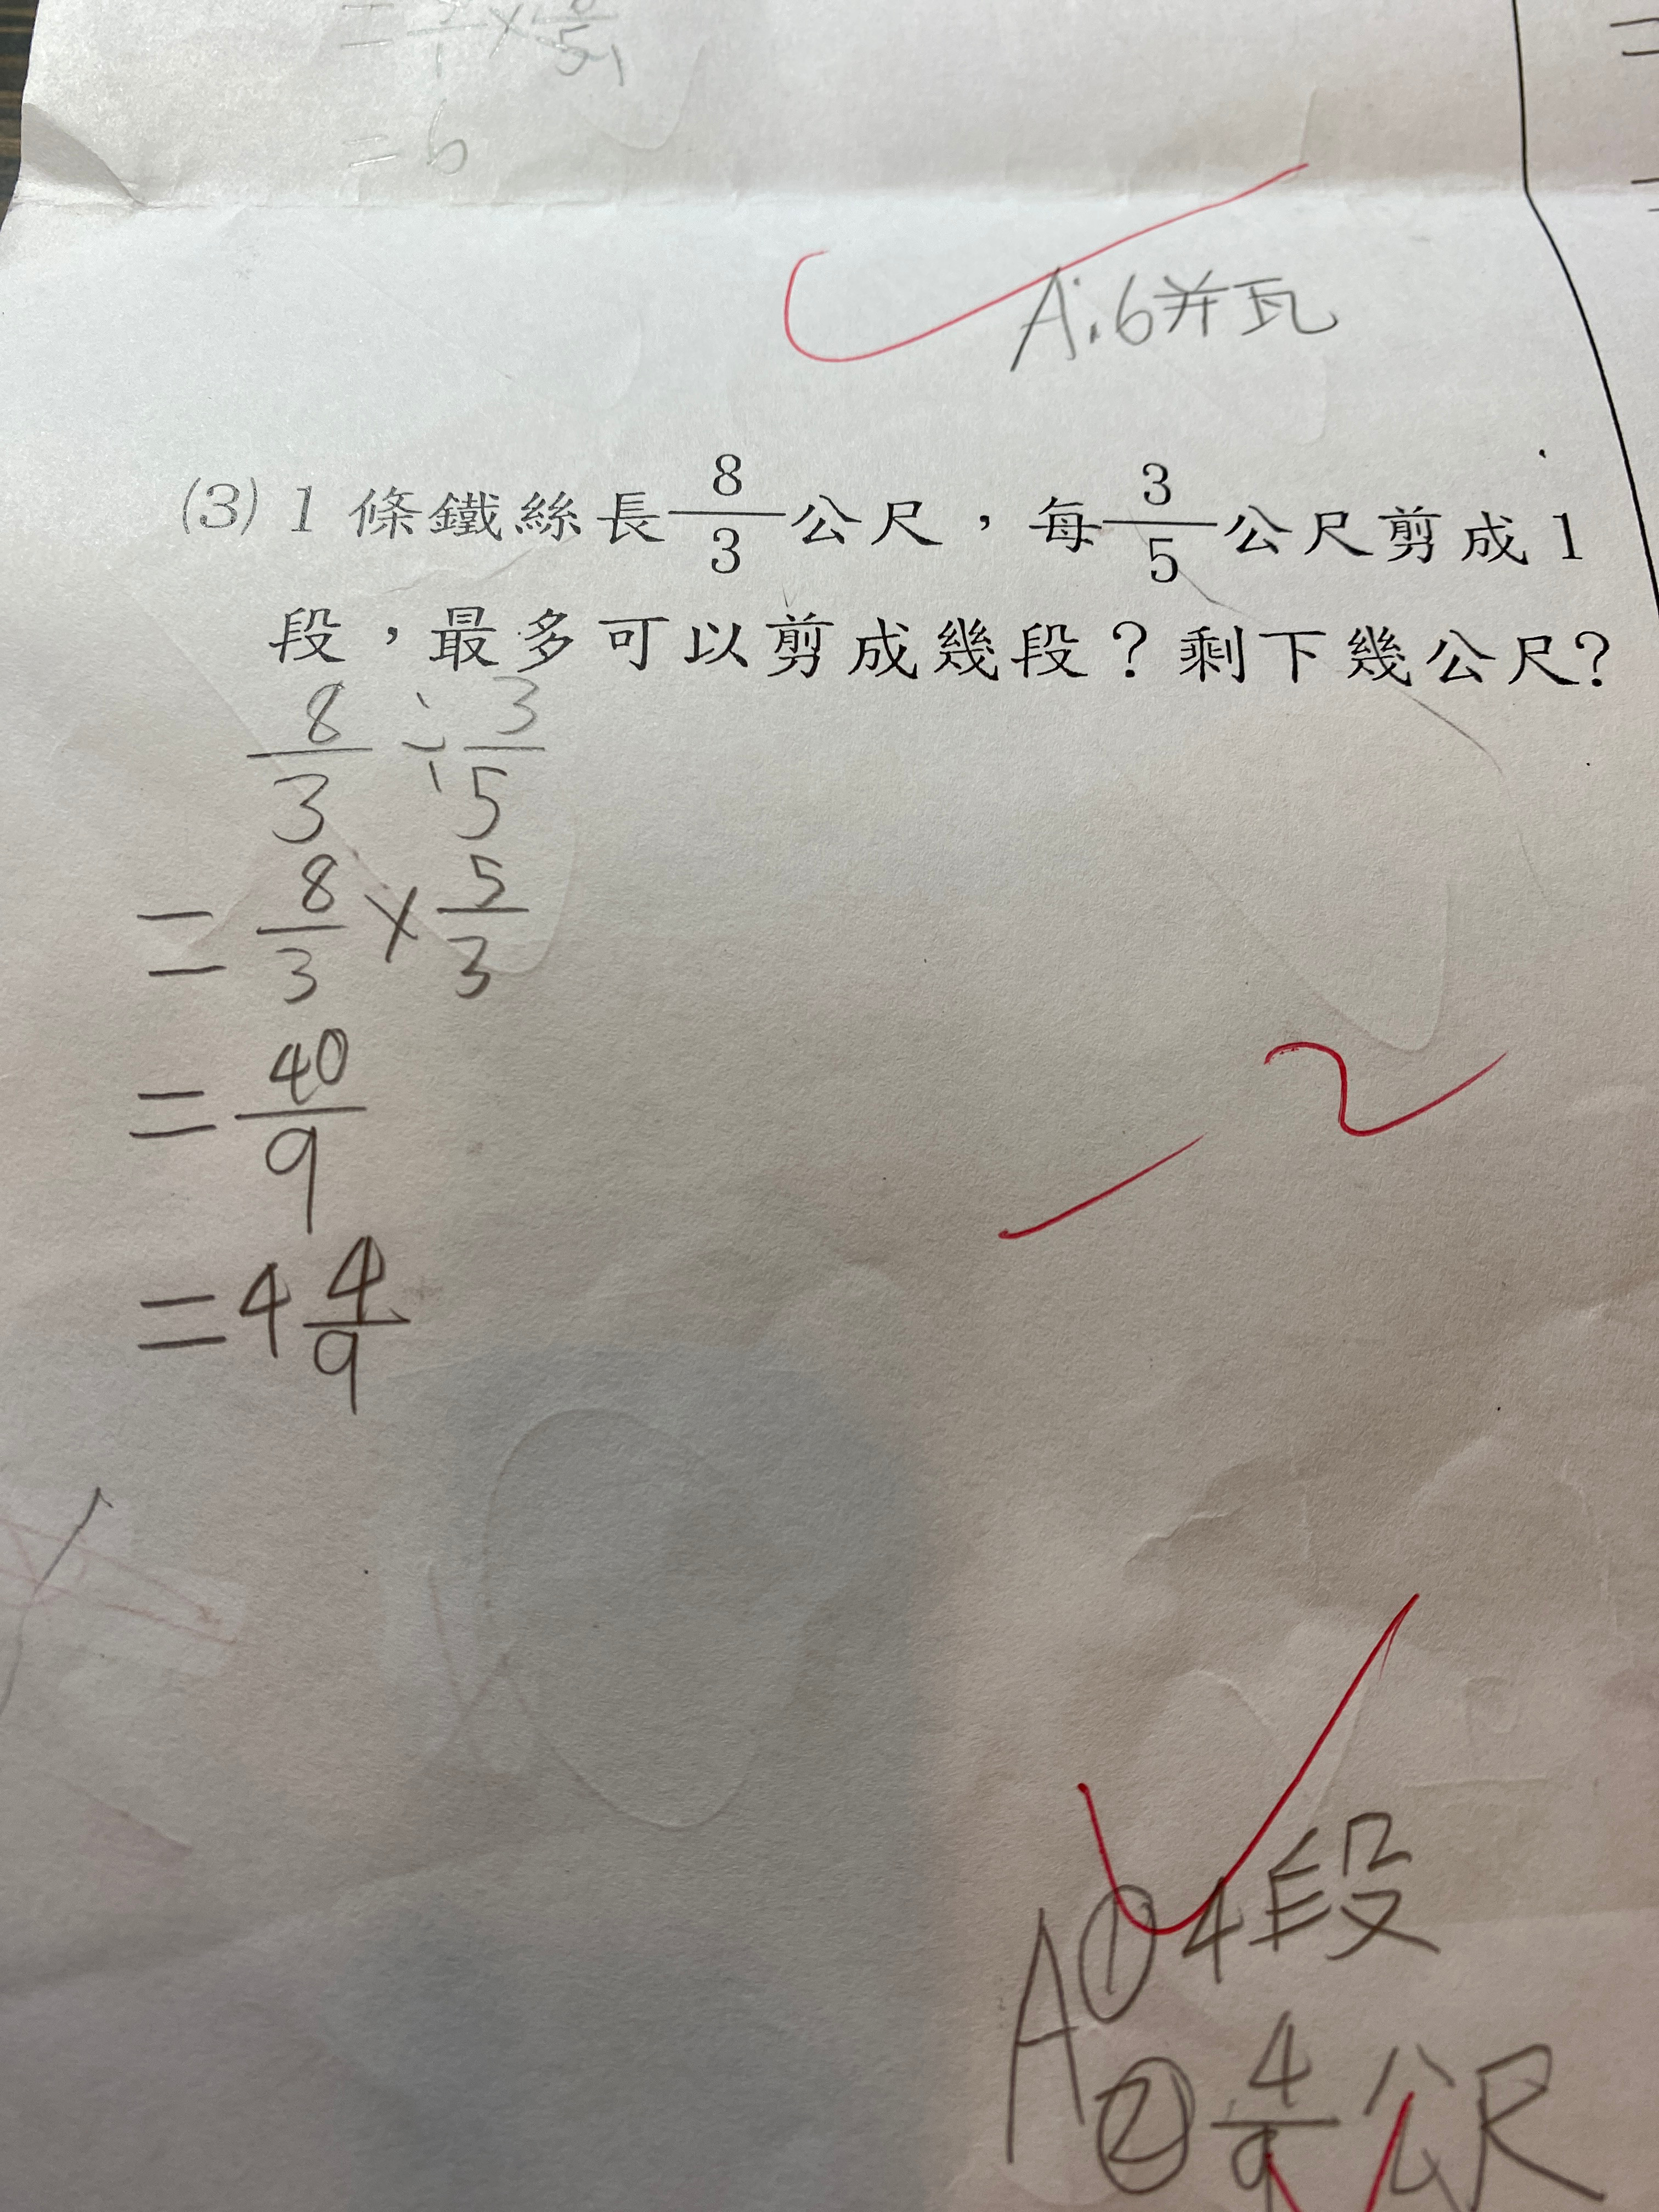 = 6
A:6并瓦
(3) 1 條鐵絲長 8/3 公尺，每 3/5 公尺剪成 1
段，最多可以剪成幾段？剩下幾公尺?
8/3 ÷ 3/5
= 8/3 × 5/3
= 40/9
= 4 4/9
-2
A ① 4段
② 4/9 公尺